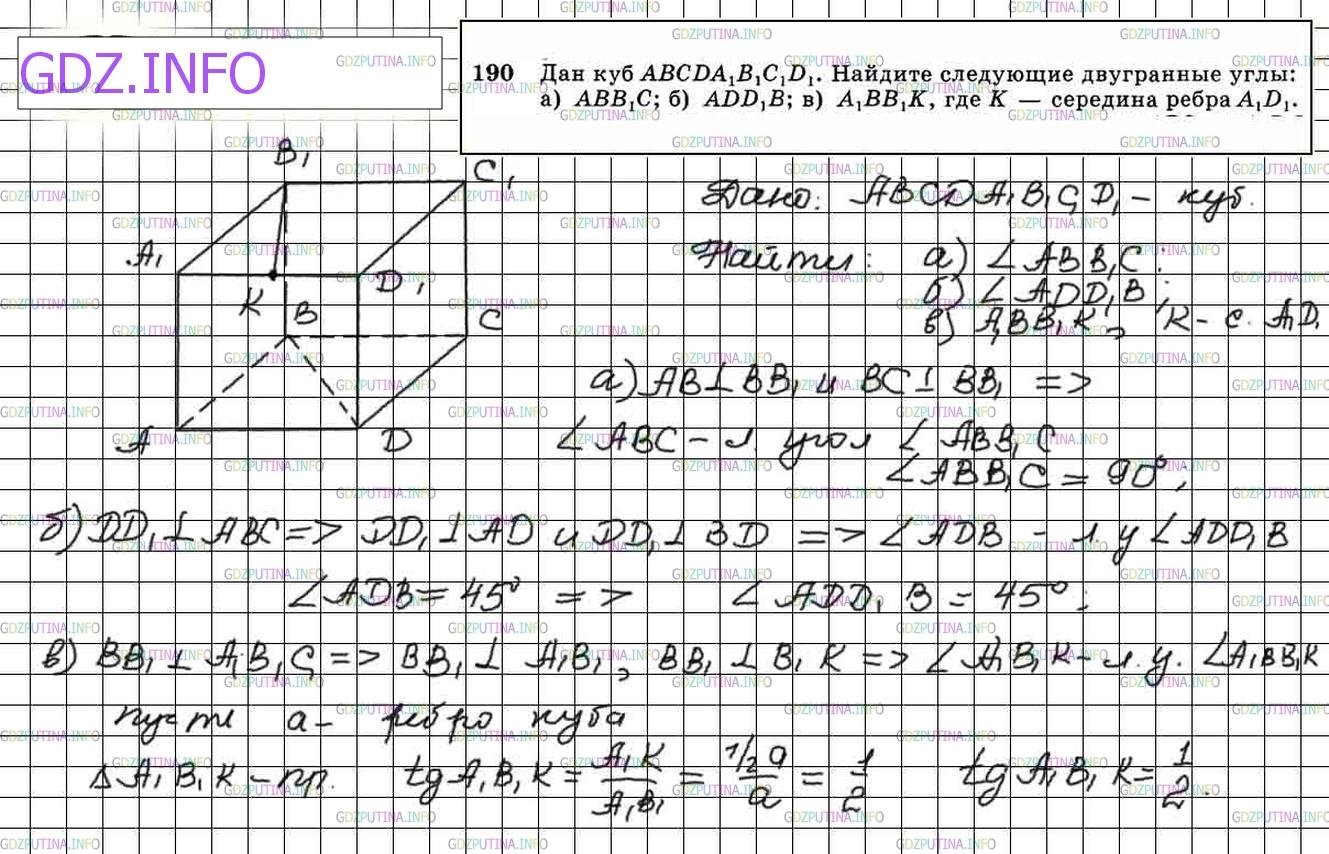 GDZ.INFO
190 Дан куб ABCDA₁B₁C₁D₁. Найдите следующие двугранные углы:
а) ABB₁C; б) ADD₁B; в) A₁BB₁K, где K — середина ребра A₁D₁.
B₁
C₁
A₁
D₁
K
B
C
A
D
Дано: ABCDA₁B₁C₁D₁ – куб.
Найти: а) ∠ABB₁C;
б) ∠ADD₁B;
в) A₁BB₁K, K – с. A₁D₁
а) AB⊥BB₁ и BC⊥BB₁ =>
∠ABC – л. угол ∠ABB₁C
∠ABB₁C = 90°;
б) DD₁⊥ABC => DD₁⊥AD и DD₁⊥BD => ∠ADB – л. у ∠ADD₁B
∠ADB = 45° => ∠ADD₁B = 45°;
в) BB₁⊥A₁B₁C₁ => BB₁⊥A₁B₁, BB₁⊥B₁K => ∠A₁B₁K – л. у. ∠A₁BB₁K
пусть a – ребро куба
ΔA₁B₁K – пр. tg A₁B₁K = A₁K/A₁B₁ = 1/2 a/a = 1/2 tg A₁B₁K = 1/2.
GDZPUTINA.INFO